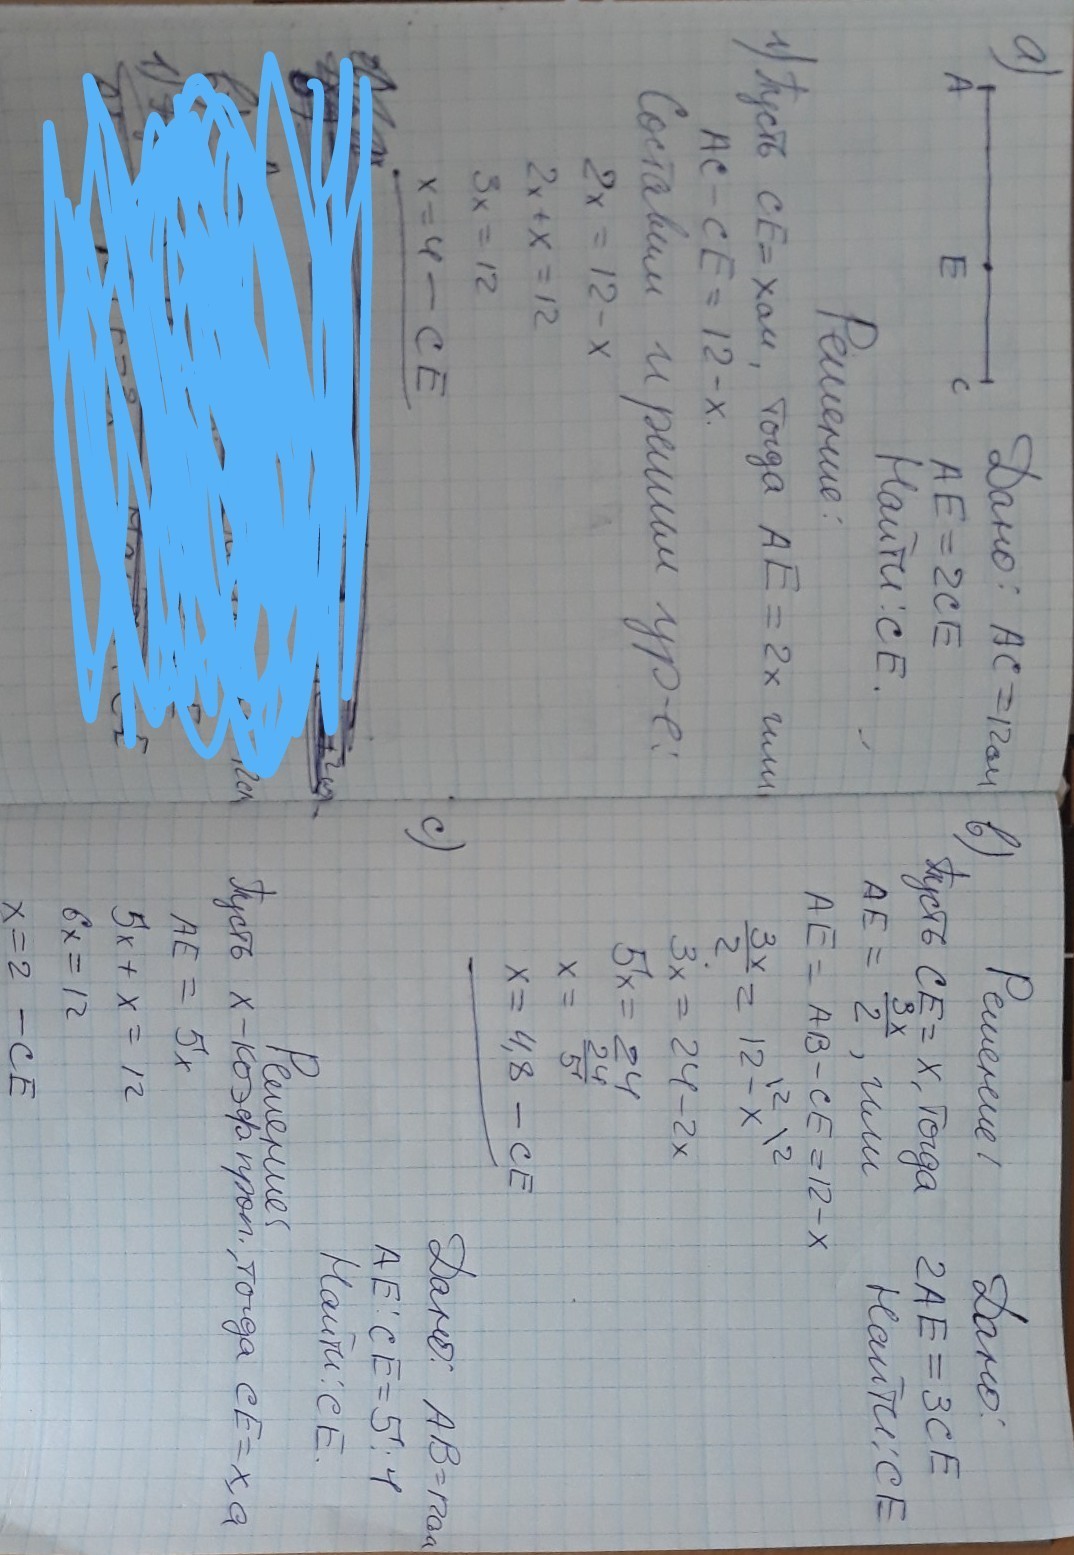 а)
A E C
Дано: AC=12см
AE=2CE
Найти: CE.
Решение:
1) Пусть CE=xсм, тогда AE=2x или
AC-CE=12-x.
Составим и решим ур-е:
2x=12-x
2x+x=12
3x=12
x=4-CE
в) Решение: Дано:
Пусть CE=x, тогда 2AE=3CE
AE=3x/2, или Найти: CE
AE=AB-CE=12-x
3x/2=12\2-x\2
3x=24-2x
5x=24
x=24/5
x=4,8-CE
с)
Дано: AB=12см
AE:CE=5:1
Найти: CE.
Решение:
Пусть x-коэф проп., тогда CE=x а
AE=5x
5x+x=12
6x=12
x=2-CE